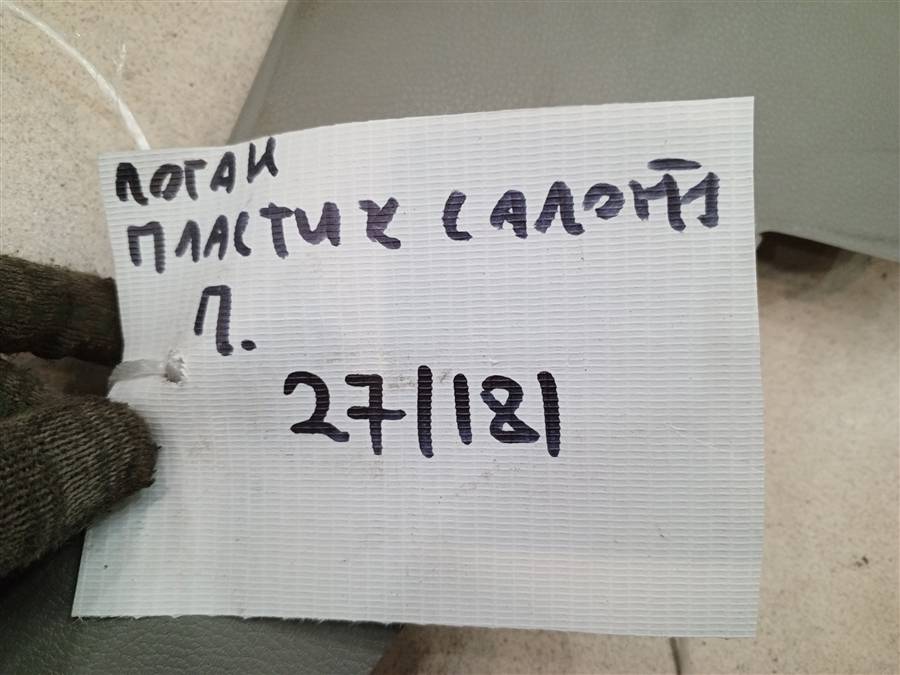 ЛОГАН
ПЛАСТИК САЛОНА
П.
27/18/